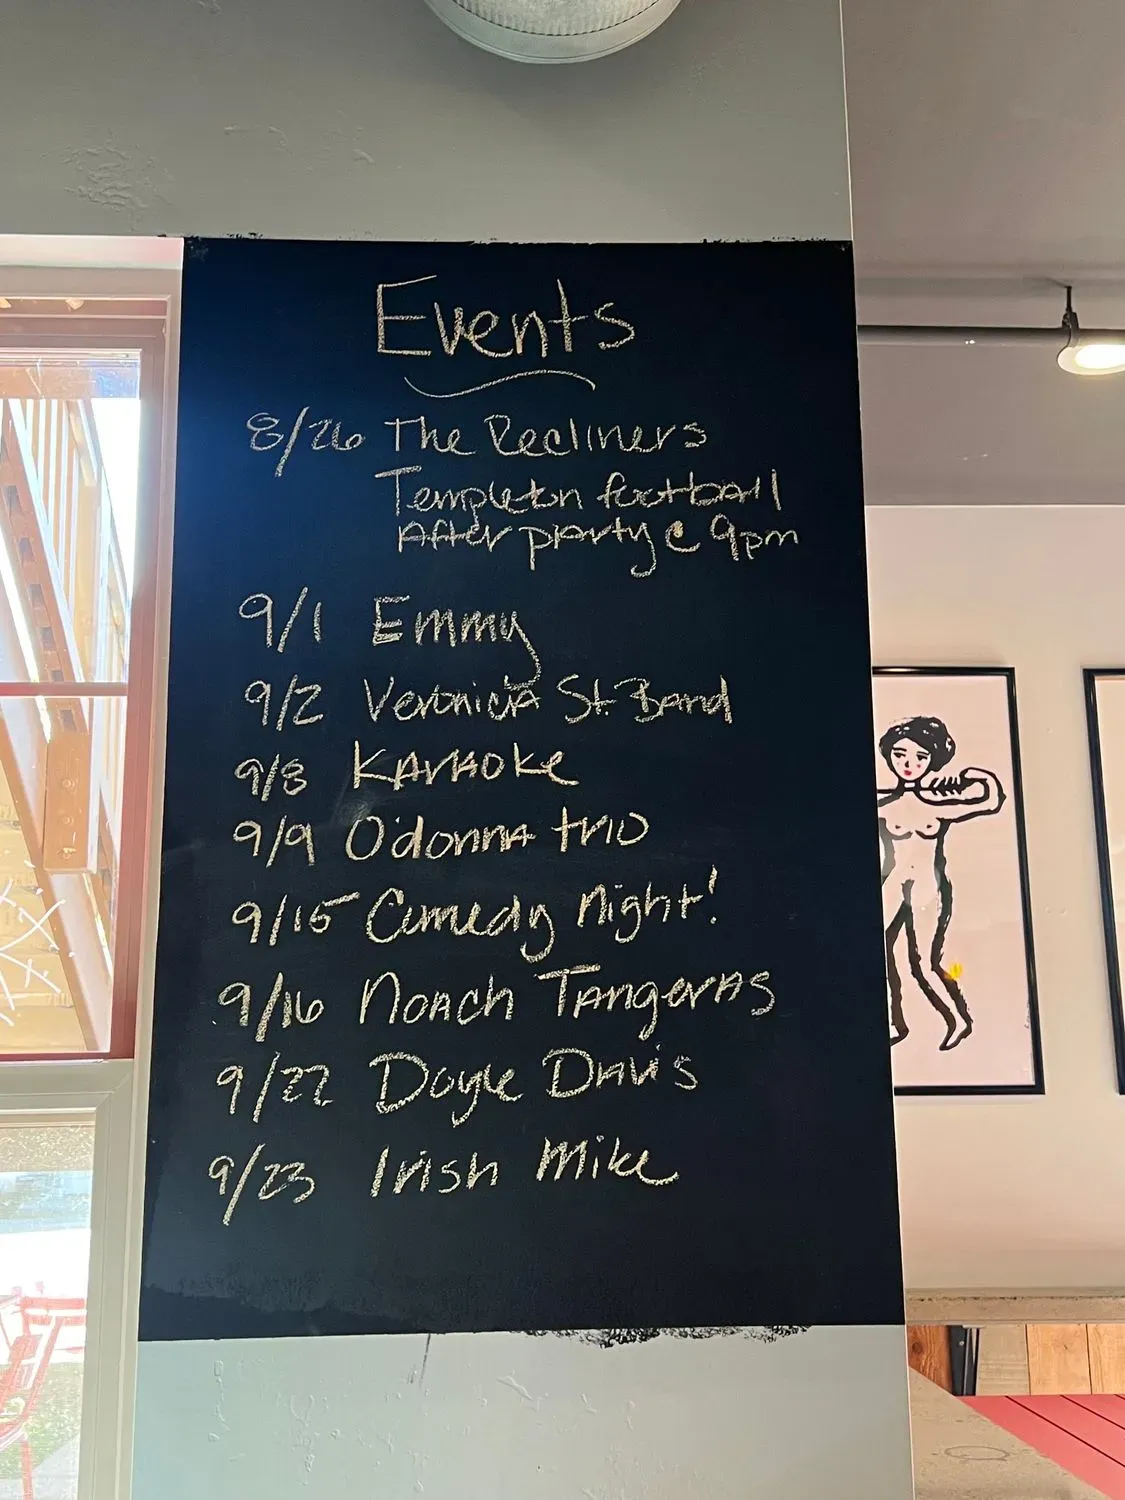 Events
8/26 The Recliners
Templeton football
After party @ 9pm
9/1 Emmy
9/2 Veronica St. Band
9/8 Karaoke
9/9 O'donna trio
9/15 Comedy Night!
9/16 Noach Tangeras
9/22 Doyle Davis
9/23 Irish Mike